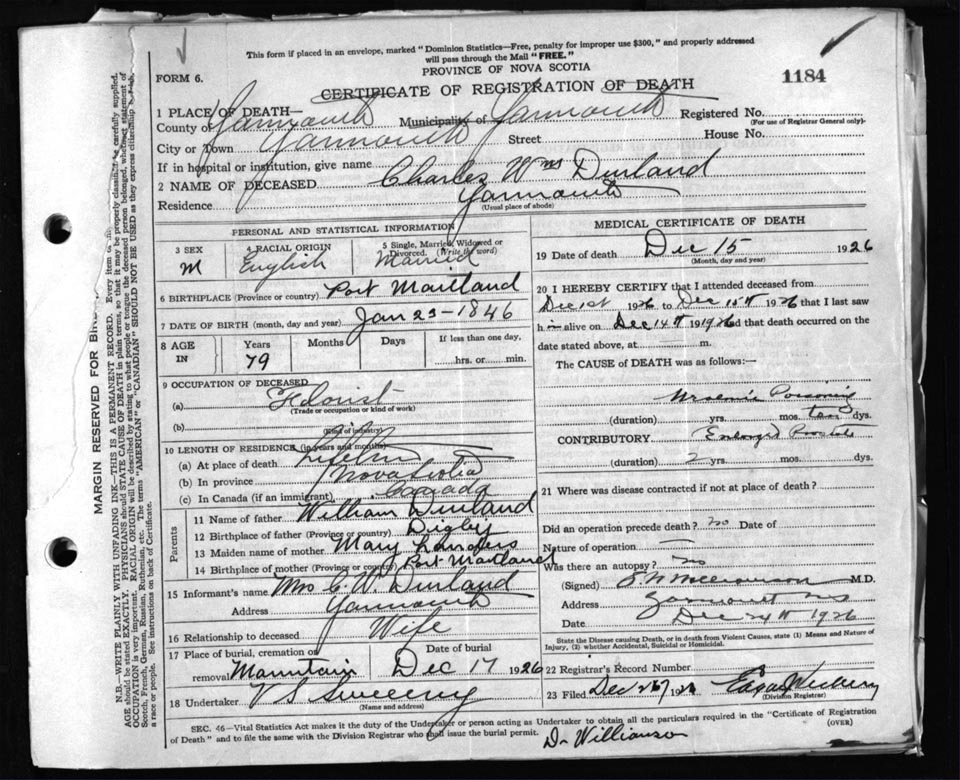 This form if placed in an envelope, marked "Dominion Statistics—Free, penalty for improper use $300," and properly addressed
will pass through the Mail "FREE."
FORM 6.
PROVINCE OF NOVA SCOTIA
1184
CERTIFICATE OF REGISTRATION OF DEATH
1 PLACE OF DEATH—
County of Yarmouth Municipality of Yarmouth Registered No.
(For use of Registrar General only).
City or Town Yarmouth Street House No.
If in hospital or institution, give name
2 NAME OF DECEASED Charles Wm Durland
Residence Yarmouth
(Usual place of abode)
PERSONAL AND STATISTICAL INFORMATION
3 SEX 4 RACIAL ORIGIN 5 Single, Married, Widowed or Divorced. (Write the word)
M English Married
6 BIRTHPLACE (Province or country) Port Maitland
7 DATE OF BIRTH (month, day and year) Jan 23-1846
8 AGE IN Years Months Days If less than one day,
79 hrs. or min.
9 OCCUPATION OF DECEASED
(a) Florist
(Trade or occupation or kind of work)
(b)
(Kind of industry)
10 LENGTH OF RESIDENCE (in years and months)
(a) At place of death Lifetime
(b) In province Nova Scotia
(c) In Canada (if an immigrant) Canada
Parents
11 Name of father William Durland
12 Birthplace of father (Province or country) Digby
13 Maiden name of mother Mary Landers
14 Birthplace of mother (Province or country) Port Maitland
15 Informant's name Mrs C. W. Durland
Address Yarmouth
16 Relationship to deceased Wife
17 Place of burial, cremation or removal Mountain Date of burial Dec 17 1926
18 Undertaker V S Sweeny
(Name and address)
MEDICAL CERTIFICATE OF DEATH
19 Date of death Dec 15 1926
(Month, day and year)
20 I HEREBY CERTIFY that I attended deceased from
Dec 1st 1926 to Dec 15th 1926 that I last saw
him alive on Dec 14th 1926 and that death occurred on the
date stated above, at m.
The CAUSE OF DEATH was as follows:—
Uraemic Poisoning
(duration) yrs. mos. ten dys.
CONTRIBUTORY Enlarged Prostate
(duration) 2 yrs. mos. dys.
21 Where was disease contracted if not at place of death?
Did an operation precede death? no Date of
Nature of operation —
Was there an autopsy? no
(Signed) M.D.
Address Yarmouth NS
Date Dec 24th 1926
State the Disease causing Death, or in death from Violent Causes, state (1) Means and Nature of
Injury, (2) whether Accidental, Suicidal or Homicidal.
22 Registrar's Record Number
23 Filed Dec 1926
(Division Registrar)
SEC. 46—Vital Statistics Act makes it the duty of the Undertaker or person acting as Undertaker to obtain all the particulars required in the "Certificate of Registration
of Death" and to file the same with the Division Registrar who shall issue the burial permit. (OVER)
Dr Williamson
MARGIN RESERVED FOR
N.B.—WRITE PLAINLY WITH UNFADING INK—THIS IS A PERMANENT RECORD. Every item of be carefully supplied.
AGE should be stated EXACTLY. PHYSICIANS should STATE CAUSE OF DEATH in plain terms, so that it may be properly classified. statement of
OCCUPATION is very important. RACIAL ORIGIN will be described by stating to what people or tongue the deceased person belonged, whether
Scotch, French, German, Russian, Ruthenian, etc. The terms "AMERICAN" or "CANADIAN" SHOULD NOT BE USED as they express citizenship
a race or people. See instructions on back of Certificate.